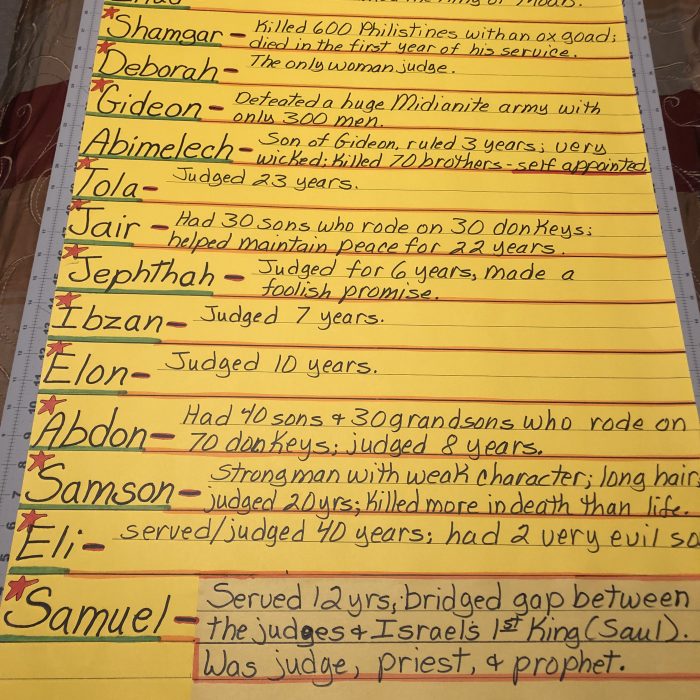 Shamgar - Killed 600 Philistines with an ox goad;
died in the first year of his service.
Deborah - The only woman judge.
Gideon - Defeated a huge Midianite army with
only 300 men.
Abimelech - Son of Gideon, ruled 3 years; very
wicked; killed 70 brothers - self appointed
Tola - Judged 23 years.
Jair - Had 30 sons who rode on 30 donkeys;
helped maintain peace for 22 years.
Jephthah - Judged for 6 years, made a
foolish promise.
Ibzan - Judged 7 years.
Elon - Judged 10 years.
Abdon - Had 40 sons & 30 grandsons who rode on
70 donkeys; judged 8 years.
Samson - Strong man with weak character; long hair;
judged 20 yrs; killed more in death than life.
Eli - served/judged 40 years; had 2 very evil so
Samuel - Served 12 yrs, bridged gap between
the judges & Israel's 1st King (Saul).
Was judge, priest, & prophet.